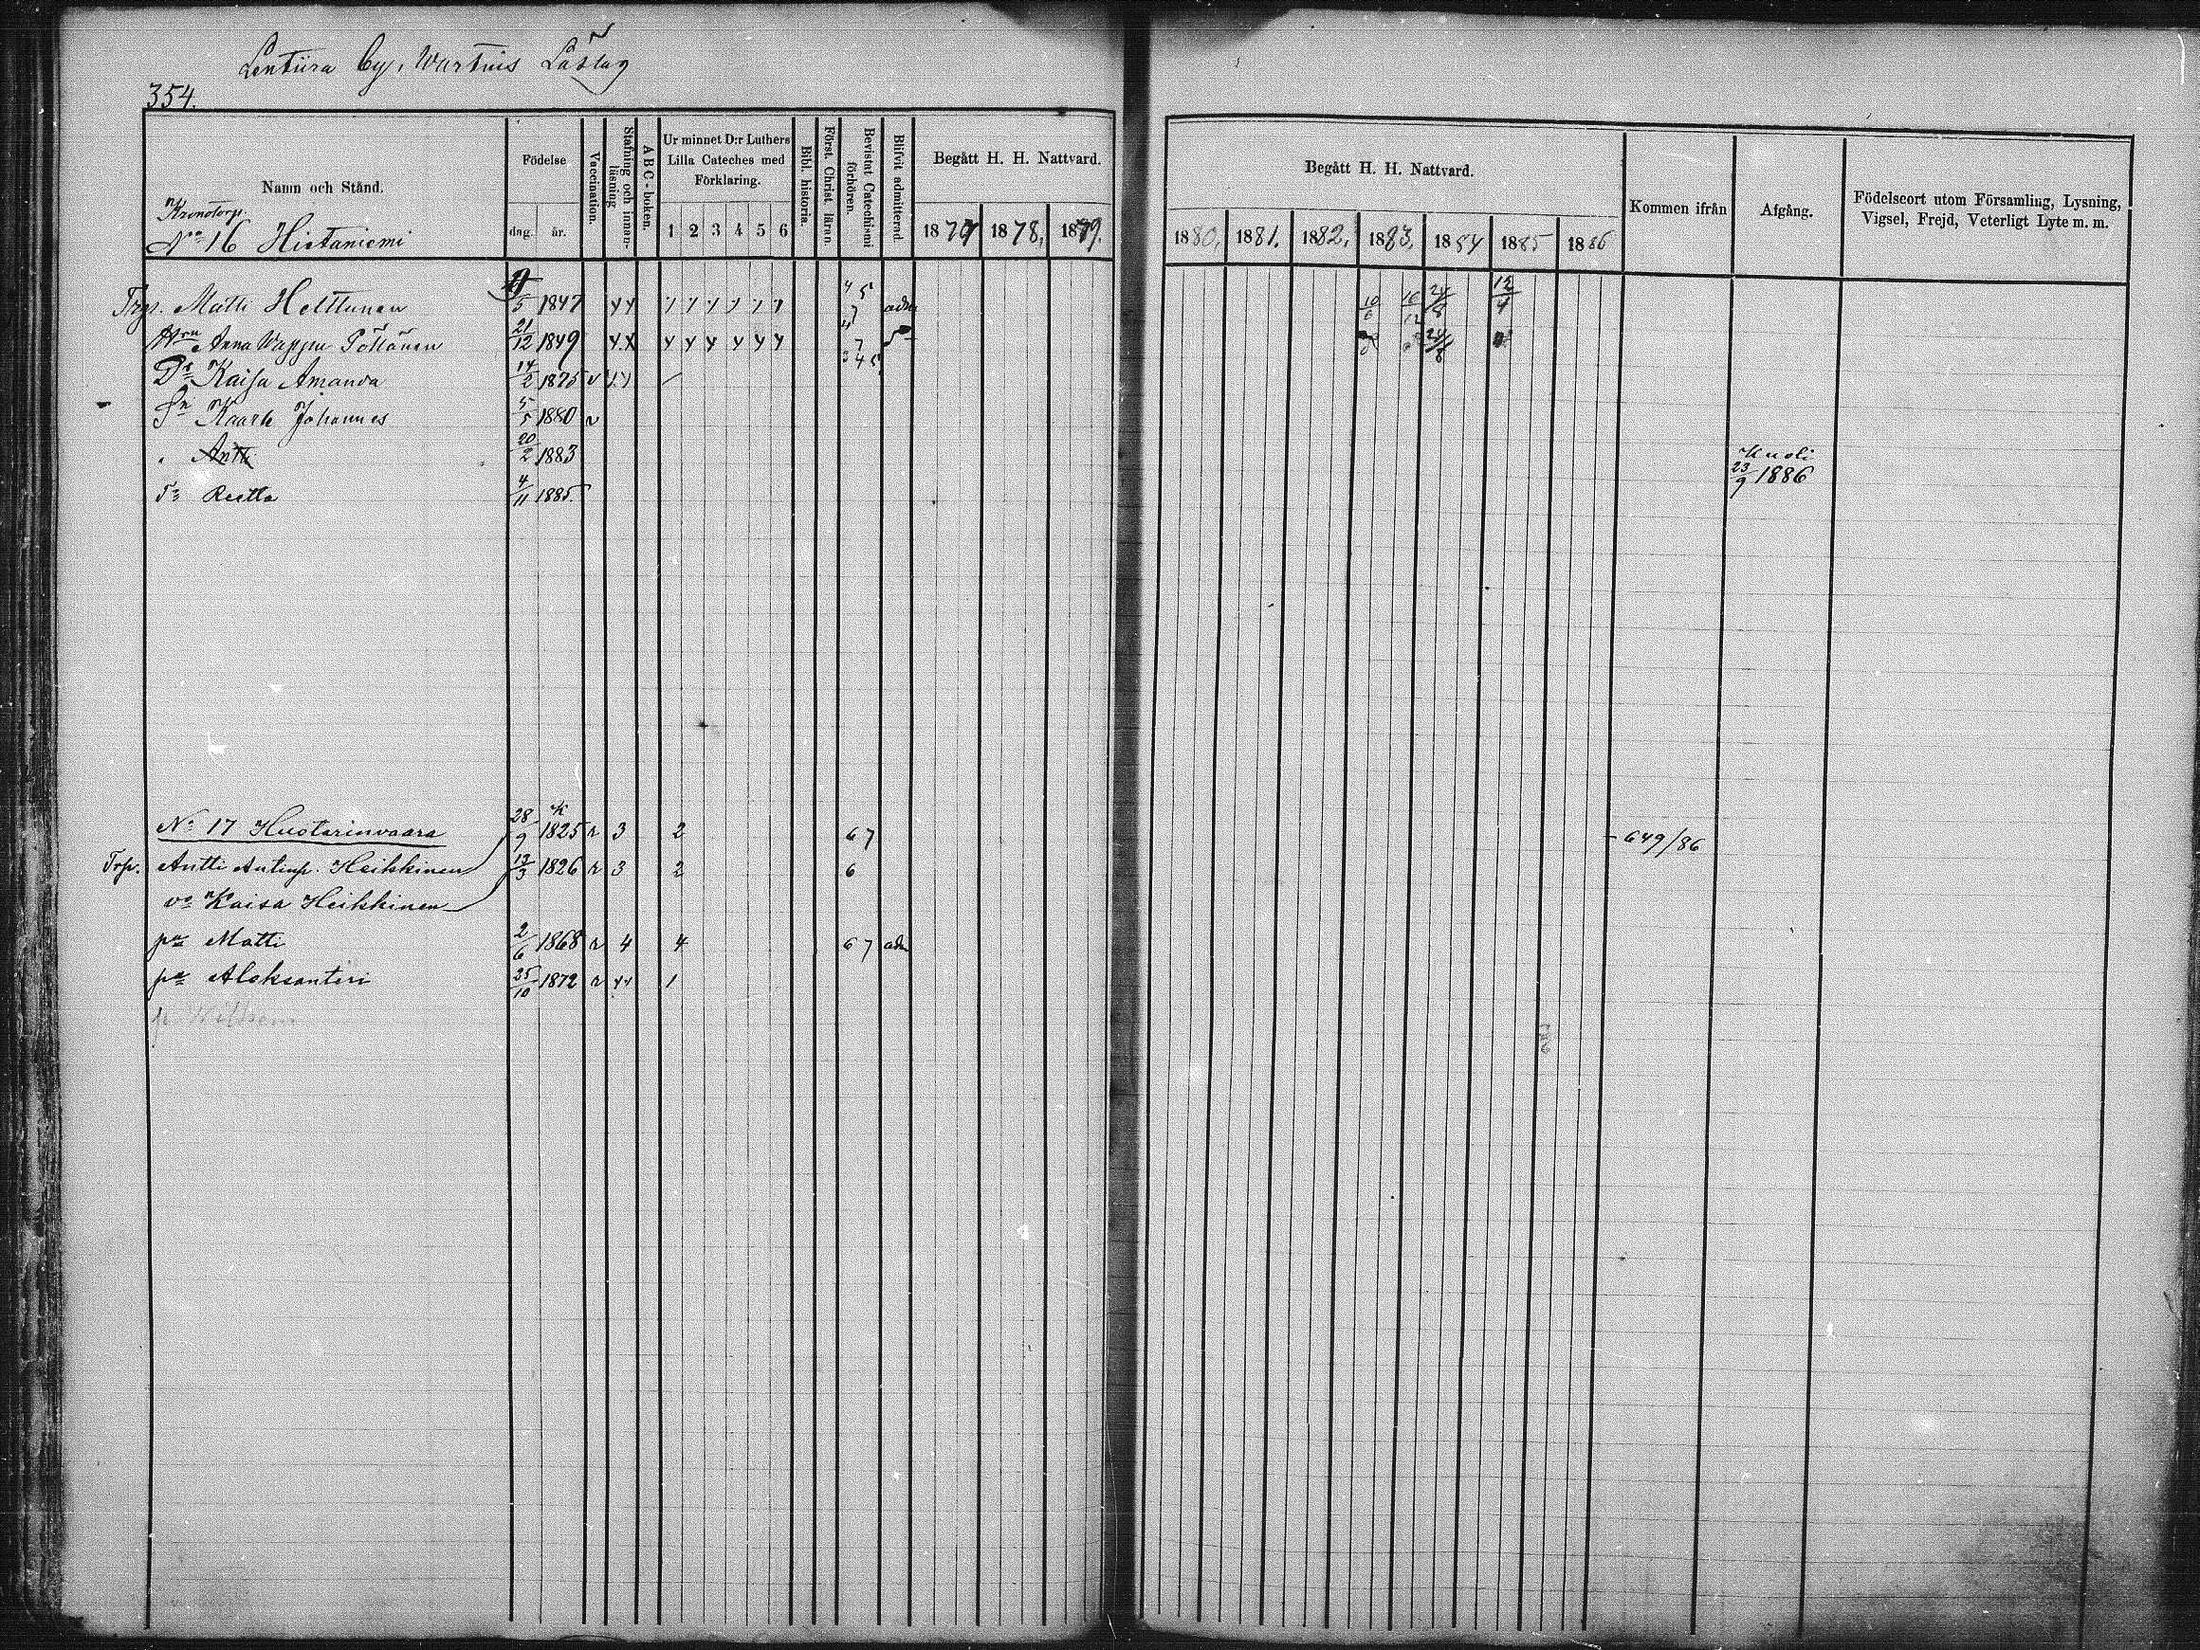 Lentiira by, Wartius Läslag
354.
Namn och Stånd.
Födelse
dag. år.
Vaccination.
Stafning och innan-läsning
A B C-boken.
Ur minnet D:r Luthers Lilla Cateches med Förklaring.
1 2 3 4 5 6
Bibl. historia.
Först. Christ. läran.
Bevistat Catechismi förhören.
Blifvit admitterad
Begått H. H. Nattvard.
1878, 1879.
Begått H. H. Nattvard.
1880, 1881. 1882, 1883, 1884 1885 1886
Kommen ifrån
Afgång.
Födelseort utom Församling, Lysning, Vigsel, Frejd, Veterligt Lyte m. m.
Kronotorp.
No 16 Hietaniemi
Matti Helttunen 5 1847 adm 10/6 24/8 12/4
Anna 21/12 1849 24/8
Dr Kaisa Amanda 14/2 1875 v
Sn Kaarle Johannes 5/5 1880 v
Antti 20/2 1883 Kuoli 23/9 1886
Reetta 4/11 1885
No 17 Huotarinvaara 28/9 1825 r 3 2 6 7 649/86
Trp. Antti Antinp. Heikkinen 1826 r 3 2 6
vo Kaisa Heikkinen
pa Matti 2/6 1868 r 4 4 6 7 adm
pa Aleksanteri 25/10 1872 r 1